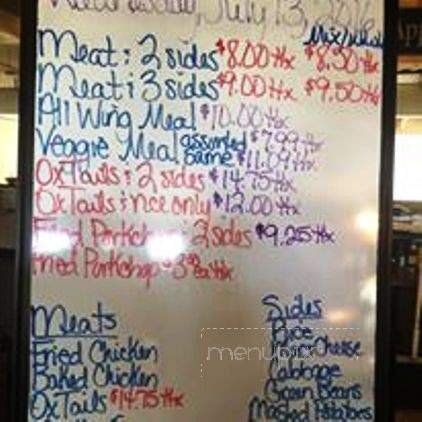 Wednesday, July 13, 2016
Mix/White
Meat: 2 sides $8.00+tx $8.50+tx
Meat: 3 sides $9.00+tx $9.50+tx
All Wing Meal $10.00+tx
Veggie Meal assorted $7.99+tx
same $11.09+tx
OxTails: 2 sides $14.75+tx
OxTails: rice only $12.00+tx
Fried Porkchop: 2 sides $9.25+tx
Fried Porkchop $3 ea+tx
Meats
Fried Chicken
Baked Chicken
OxTails $14.75+tx
Sides
Rice
Mac Cheese
Cabbage
Green Beans
Mashed Potatoes
menubix